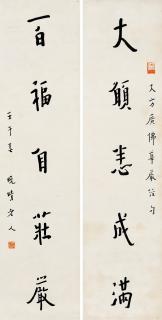 大方廣佛華嚴經句
大願悉成滿
百福自莊嚴
壬午春 晚晴老人